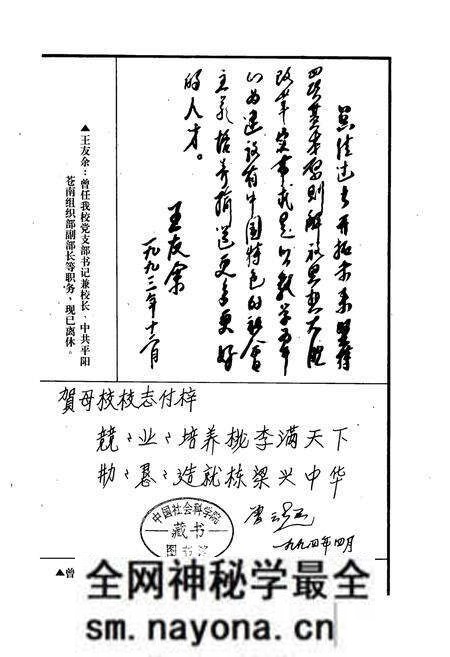 总结过去开拓未来坚持
四项基本原则解放思想大胆
改革实事求是以教学为中
心为建设有中国特色的社会
主义培养输送更多更好
的人才。
王友余
一九九三年十二月
▲王友余:曾任我校党支部书记兼校长、中共平阳
苍南组织部副部长等职务,现已离休。
賀母校校志付梓
兢〻业〻培养桃李满天下
勤〻恳〻造就栋梁兴中华
一九九四年四月
中国社会科学院
藏书
图书馆
▲曾
全网神秘学最全
sm.nayona.cn